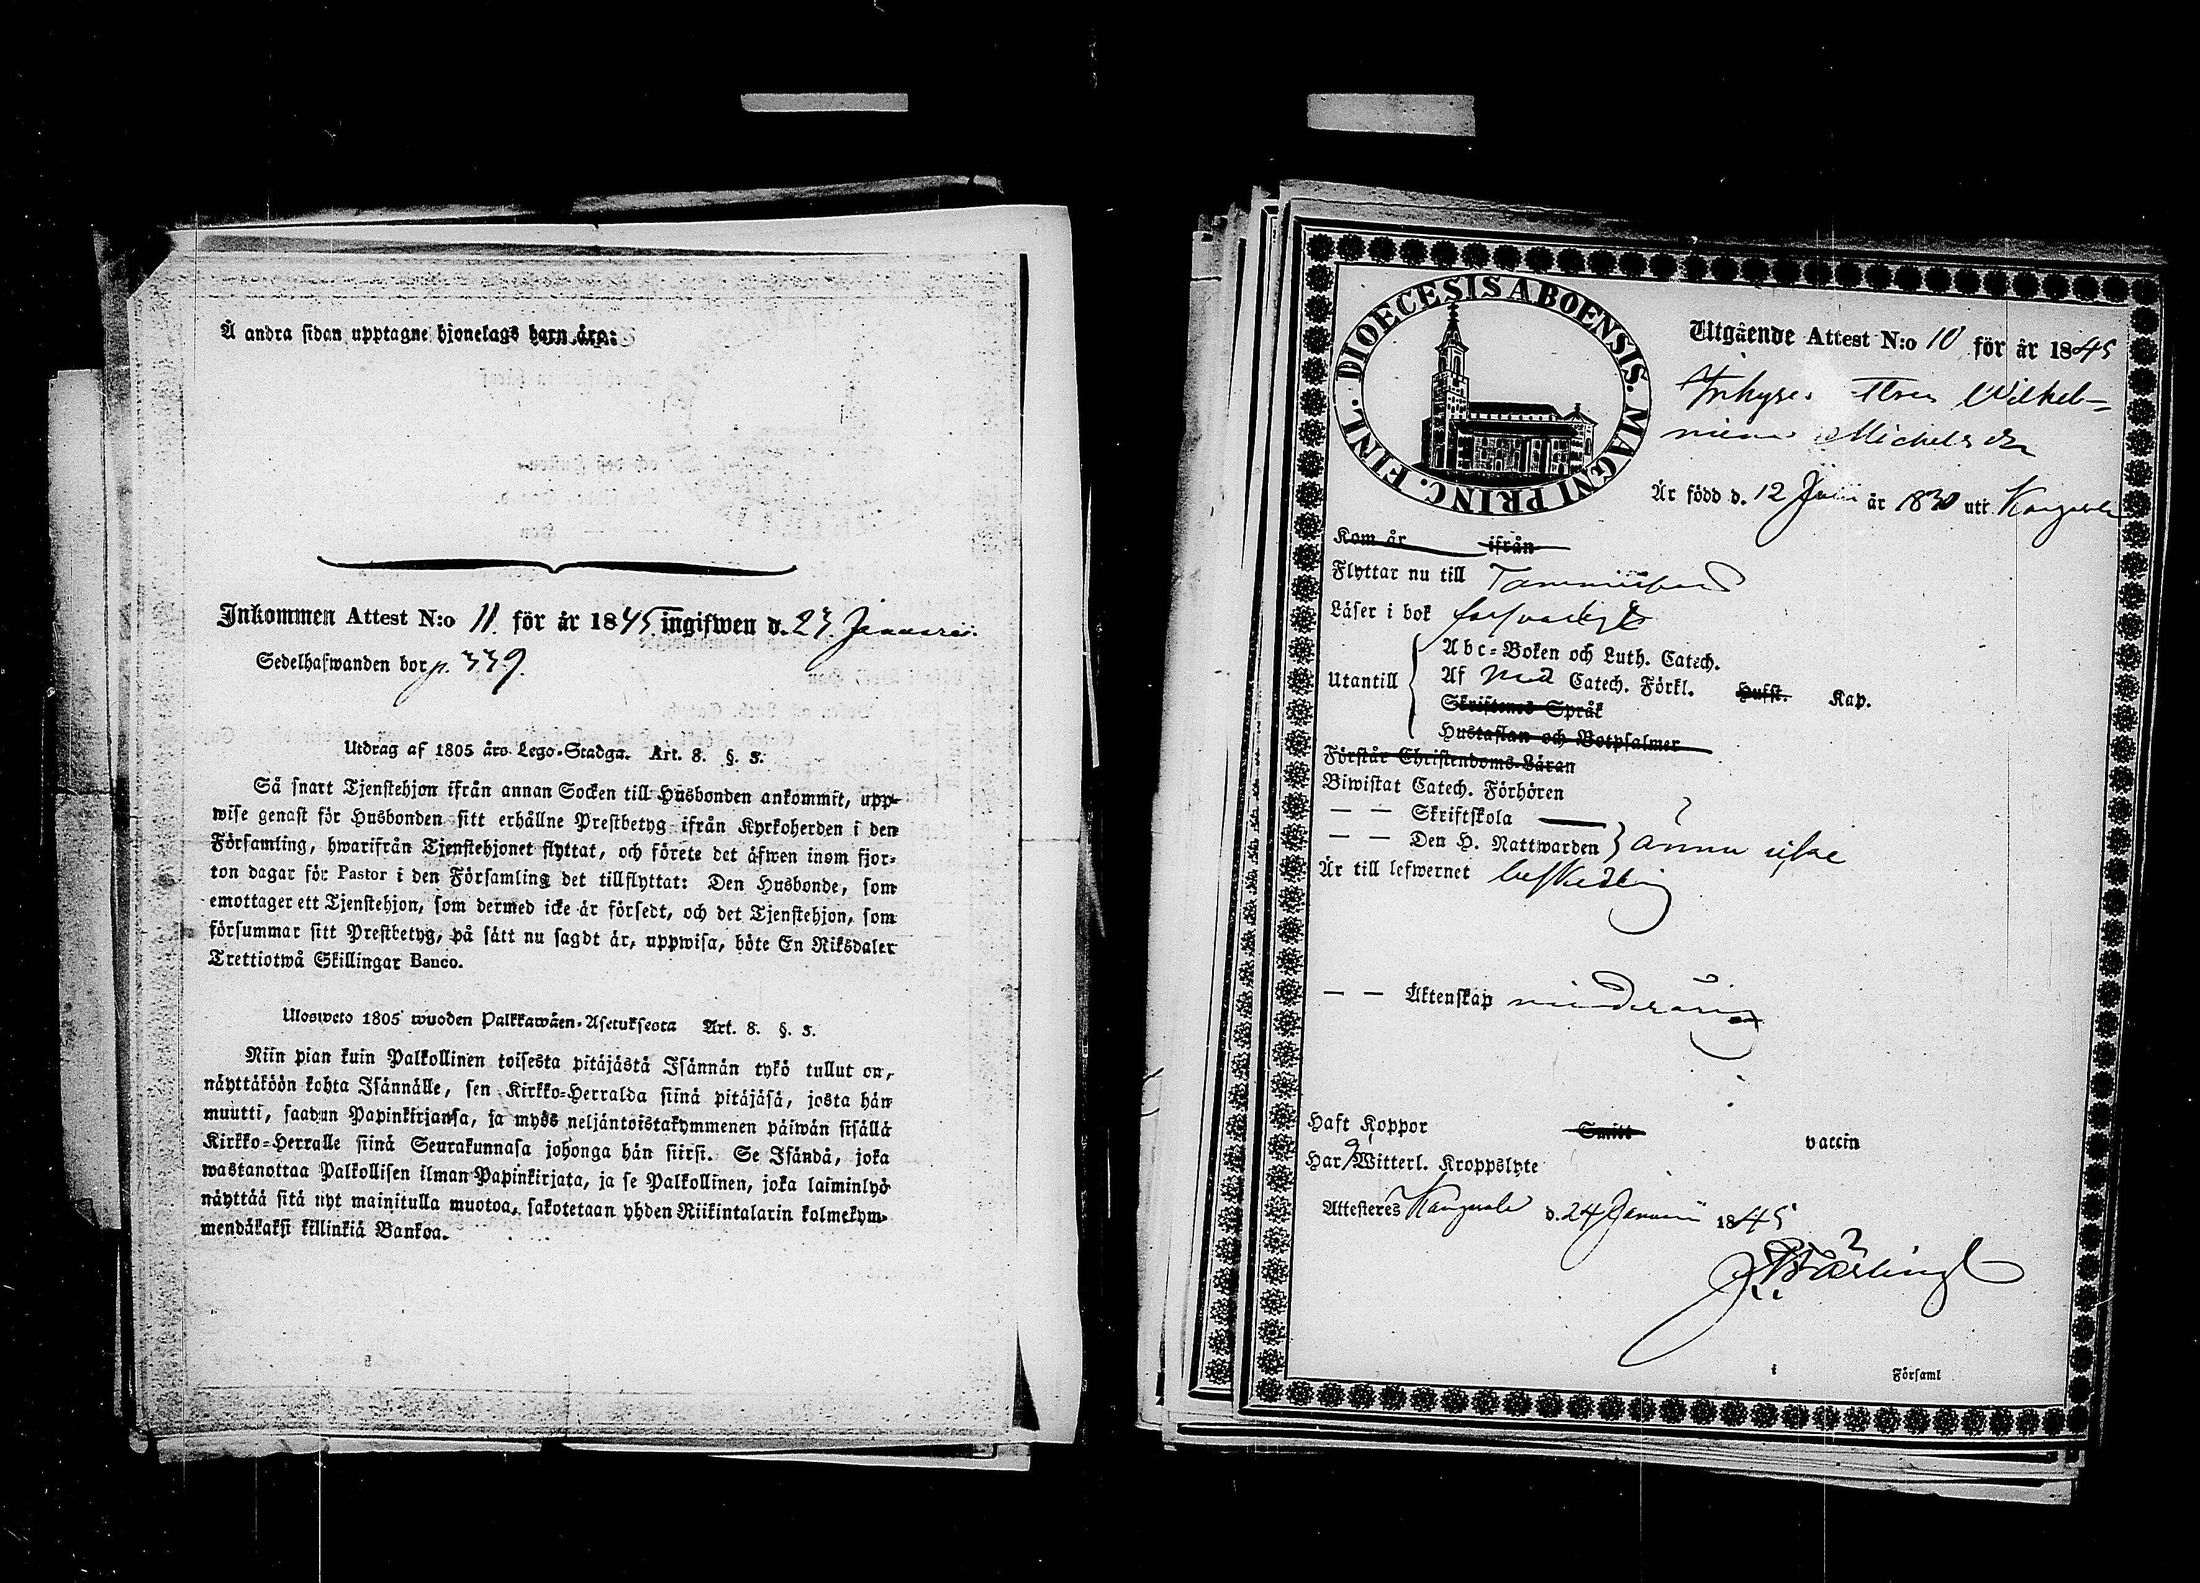 Å andra sidan upptagne hjonelags barn äro:
Inkommen Attest N:o 11. för år 1845. ingifwen d. 27. Januarii.
Sedelhafwanden bor p. 339.
Utdrag af 1805 års Lego-Stadga. Art. 8. §. 3.
Så snart Tjenstehjon ifrån annan Socken till Husbonden ankommit, upp-
wise genast för Husbonden sitt erhållne Prestbetyg ifrån Kyrkoherden i den
Församling, hwarifrån Tjenstehjonet flyttat, och förete det äfwen inom fjor-
ton dagar för Pastor i den Församling det tillflyttat: Den Husbonde, som
emottager ett Tjenstehjon, som dermed icke är försedt, och det Tjenstehjon, som
försummar sitt Prestbetyg, på sätt nu sagdt är, uppwisa, böte En Riksdaler
Trettiotwå Skillingar Banco.
Ulosweto 1805 wuoden Palkkawäen-Asetuksesta Art. 8. §. 3.
Niin pian kuin Palkollinen toisesta pitäjästä Isännän tykö tullut on,
näyttäköön kohta Isännälle, sen Kirkko-Herralda siinä pitäjäsä, josta hän
muutti, saadun Papinkirjansa, ja myös neljäntoistakymmenen päiwän sisällä
Kirkko-Herralle siinä Seurakunnasa johonga hän siirsi. Se Isändä, joka
wastanottaa Palkollisen ilman Papinkirjata, ja se Palkollinen, joka laiminlyö
näyttää sitä nyt mainitulla muotoa, sakotetaan yhden Riikintalarin kolmekym-
mendäkaksi killinkiä Bankoa.
DIOECESIS ABOENSIS. MAGNI PRINC. FINL.
Utgående Attest N:o 10 för år 1845
Wilhel-
mina Michelsdr
Är född d. 12 år 1830 uti Kangasala
Kom år ifrån
Flyttar nu till
Läser i bok försvarligt
Utantill
Abc-Boken och Luth. Catech.
Af med Catech. Förkl. Hufst. Kap.
Skriftenes Språk
Hustaflan och Botpsalmer
Förstår Christendoms-Läran
Biwistat Catech. Förhören
— — Skriftskola
— — Den H. Nattwarden } ännu icke
Är till lefwernet beskedlig
— — Äktenskap minderårig
Haft Koppor Smitt vaccin
Har Witterl. Kroppslyte
Attesteres Kangasala d. 24 Januarii 1845
i Församl